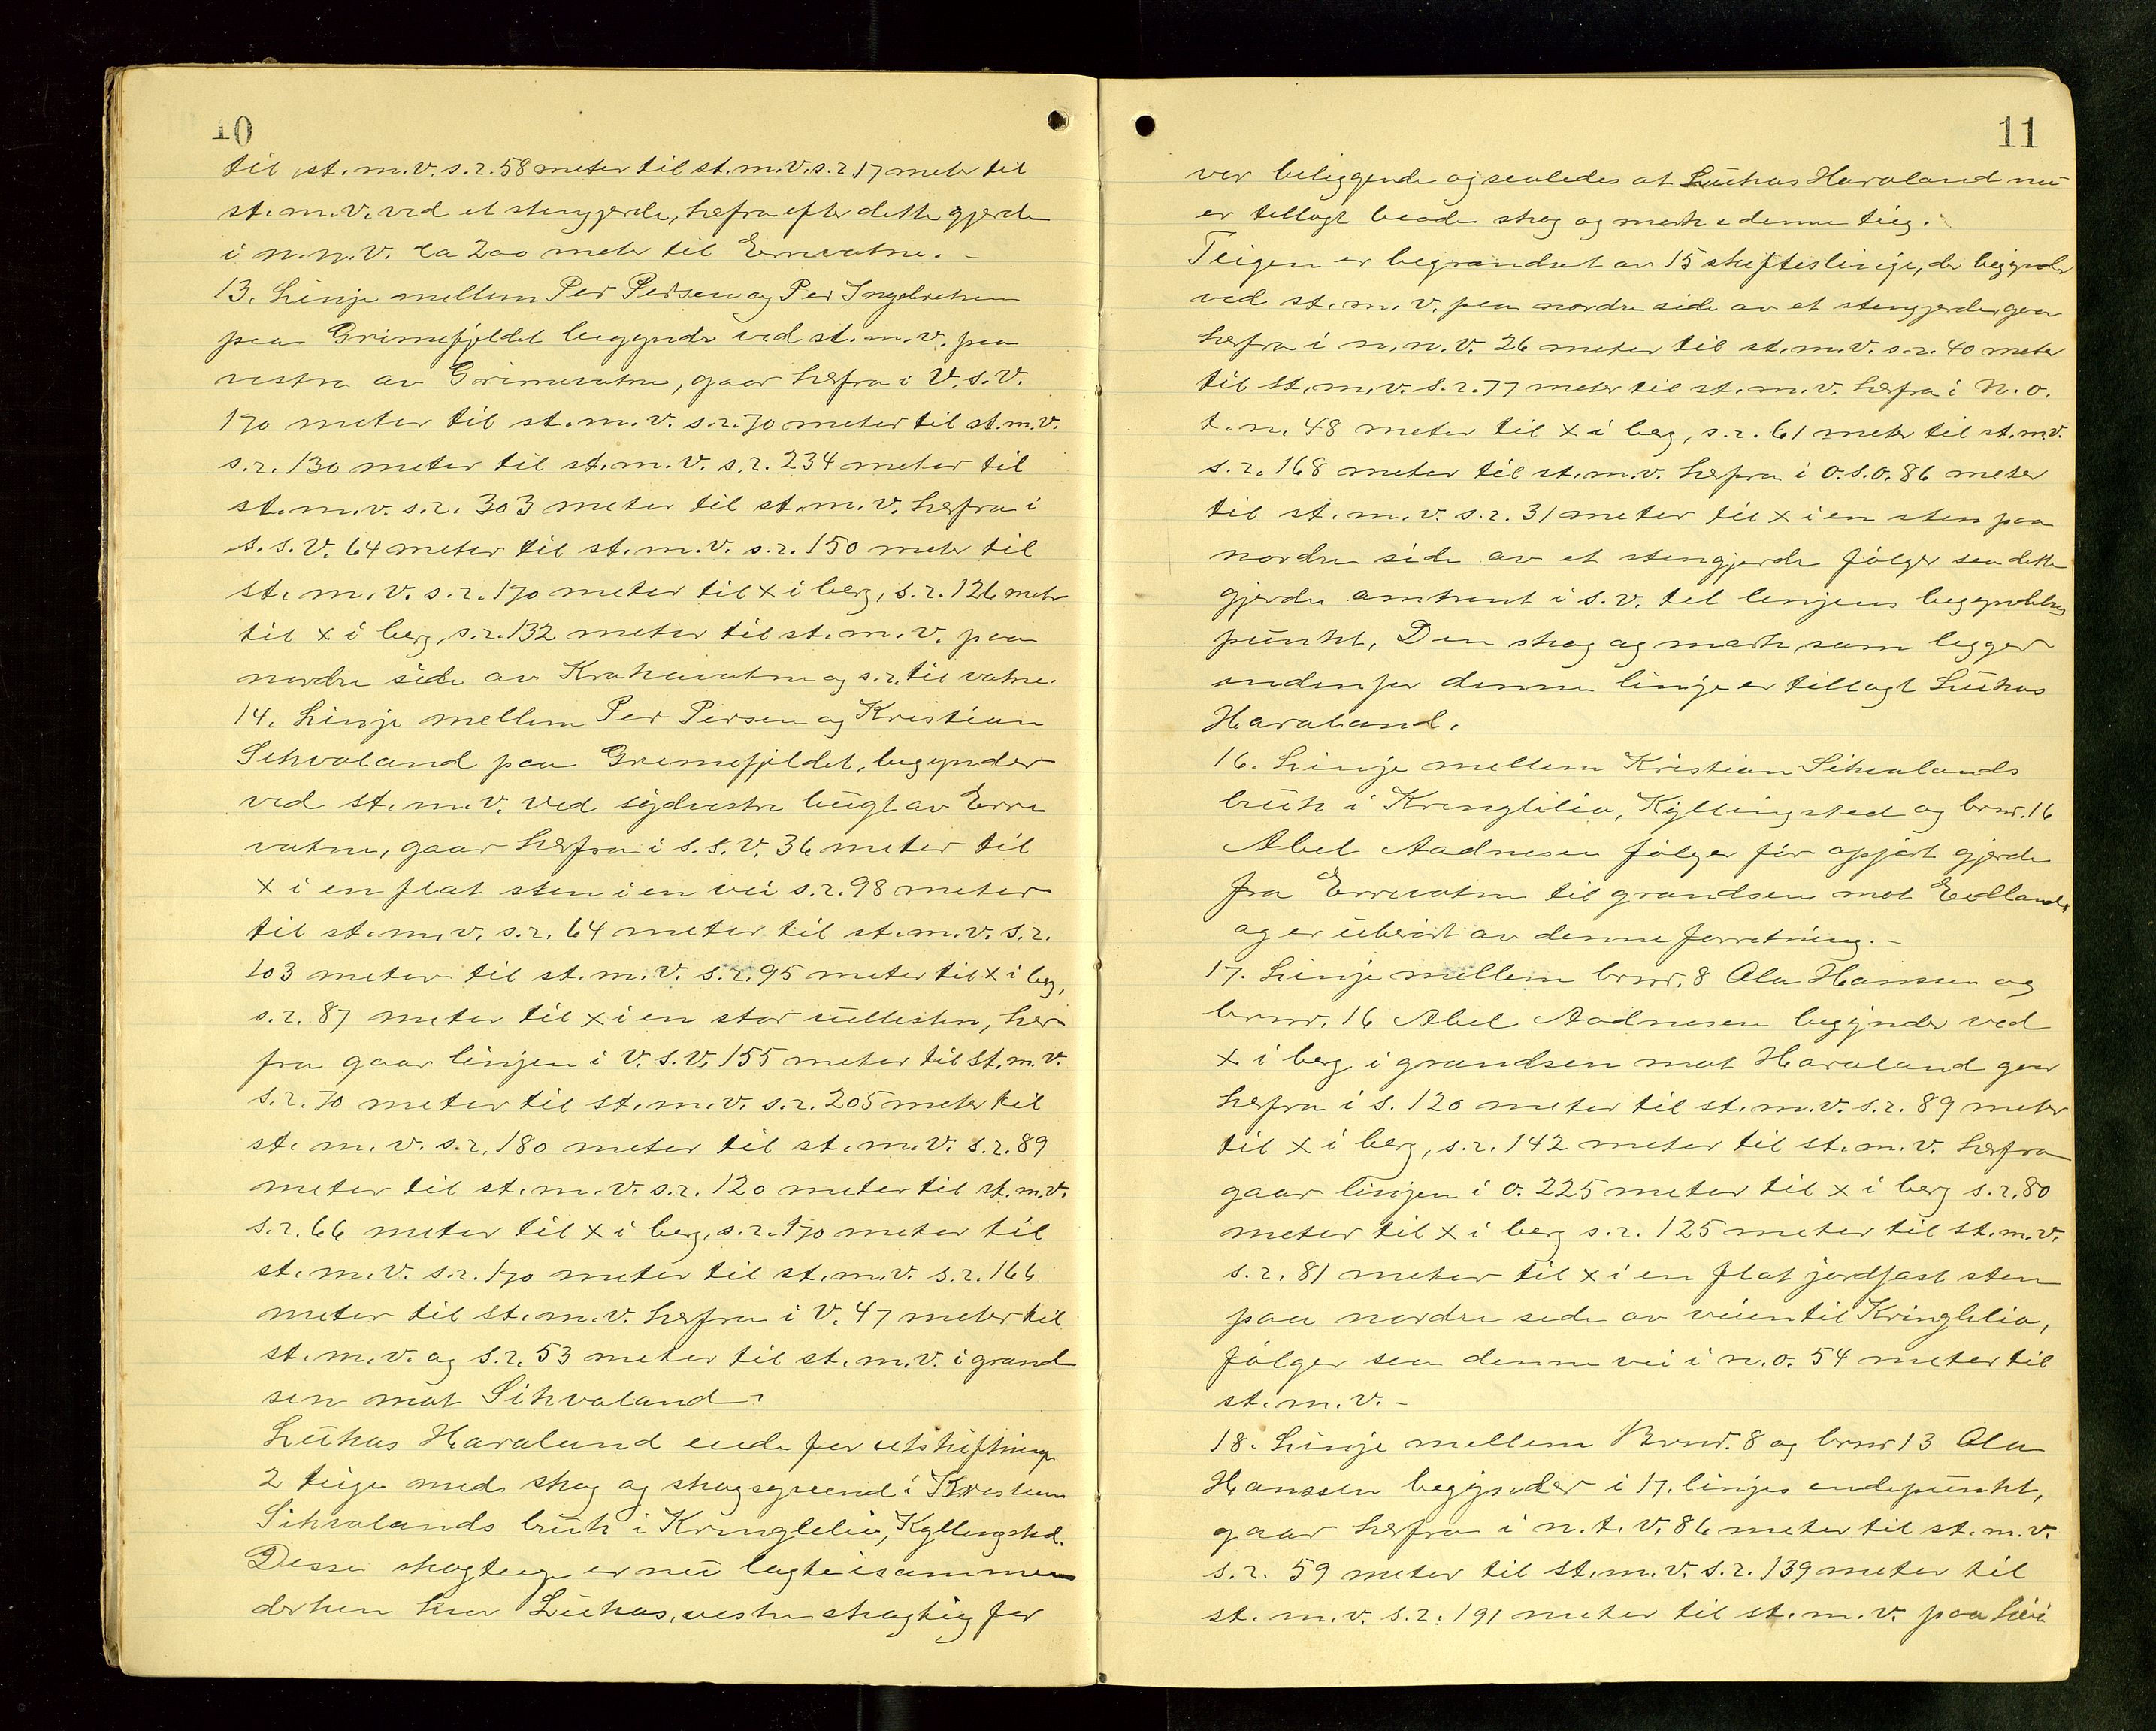 10
til st. m. v. s. r. 58 meter til st. m. v. s. r. 17 meter til
st. m. v. ved et stengjerde, herfra efter dette gjerde
i n. n. v. ca 200 meter til Errevatne. -
13. Linje mellem Per Persen og Per Ingebretsen
paa Grimefjeldet begynder ved st. m. v. paa
vestre av Grimevatne, gaar herfra i V. S. V.
170 meter til st. m. v. s. r. 70 meter til st. m. v.
s. r. 130 meter til st. m. v. s. r. 234 meter til
st. m. v. s. r. 303 meter til st. m. v. herfra i
s. s. v. 64 meter til st. m. v. s. r. 150 meter til
st. m. v. s. r. 170 meter til x i berg, s. r. 126 meter
til x i berg, s. r. 132 meter til st. m. v. paa
nordre side av Krakavatne og s. r. til vatne.
14. Linje mellem Per Persen og Kristian
Sikvaland paa Grimefjeldet, begynder
ved st. m. v. ved sydvestre bugt av Erre
vatne, gaar herfra i s. s. v. 36 meter til
x i en flat sten i en vei s. r. 98 meter
til st. m. v. s. r. 64 meter til st. m. v. s. r.
103 meter til st. m. v. s. r. 95 meter til x i berg,
s. r. 87 meter til x i en stor rullesten, her
fra gaar linjen i v. s. v. 155 meter til st. m. v.
s. r. 70 meter til st. m. v. s. r. 205 meter til
st. m. v. s. r. 180 meter til st. m. v. s. r. 89
meter til st. m. v. s. r. 120 meter til st. m. v.
s. r. 66 meter til x i berg, s. r. 170 meter til
st. m. v. s. r. 170 meter til st. m. v. s. r. 166
meter til st. m. v. herfra i v. 47 meter til
st. m. v. og s. r. 53 meter til st. m. v. i grand
sen mot Sikvaland.
Lukas Haraland eiede før utskiftningen
2 teige med skog og skogsgreend i Kristian
Sikvalands bruk i Kringlelia, Kyllingsted.
Desse skogteige er nu lagte isammen
derhen hvor Lukas, vestre skogteig før
11
var beliggende og saaledes at Lukas Haraland nu
er tillagt baade skog og mark i denne teig.
Teigen er begrandset av 15 skifteslinje, der begynder
ved st. m. v. paa nordre side av et stengjerde, gaar
herfra i n. n. v. 26 meter til st. m. v. s. r. 40 meter
til st. m. v. s. r. 77 meter til st. m. v. herfra i n. o.
t. n. 48 meter til x i berg, s. r. 61 meter til st. m. v.
s. r. 168 meter til st. m. v. herfra i o. s. o. 86 meter
til st. m. v. s. r. 31 meter til x i en sten paa
nordre side av et stengjerde følger saa dette
gjerde omtrent i s. v. til linjens begyndelses
punkt. Den skog og mark, som ligger
indenfor denne linje er tillagt Lukas
Haraland.
16. Linje mellem Kristian Sikvalands
bruk i Kringlelia, Kyllingsted og brnr. 16
Abel Aadnesen følger før opført gjerde
fra Errevatne til grandsen mot Eidland
og er uberørt av denne forretning. -
17. Linje mellem brnr. 8 Ola Hanssen og
brnr. 16 Abel Aadnesen begynder ved
x i berg i grandsen mot Haraland gaar
herfra i s. 120 meter til st. m. v. s. r. 89 meter
til x i berg, s. r. 142 meter til st. m. v. herfra
gaar linjen i o. 225 meter til x i berg s. r. 80
meter til x i berg s. r. 125 meter til st. m. v.
s. r. 81 meter til x i en flat jordfast sten
paa nordre side av veien til Kringlelia,
følger saa denne vei i n. o. 54 meter til
st. m. v. -
18. Linje mellem Brnr. 8 og brnr 13 Ola
Hanssen begynder i 17. linjes endepunkt,
gaar herfra i n. t. v. 86 meter til st. m. v.
s. r. 59 meter til st. m. v. s. r. 139 meter til
st. m. v. s. r. 191 meter til st. m. v. paa